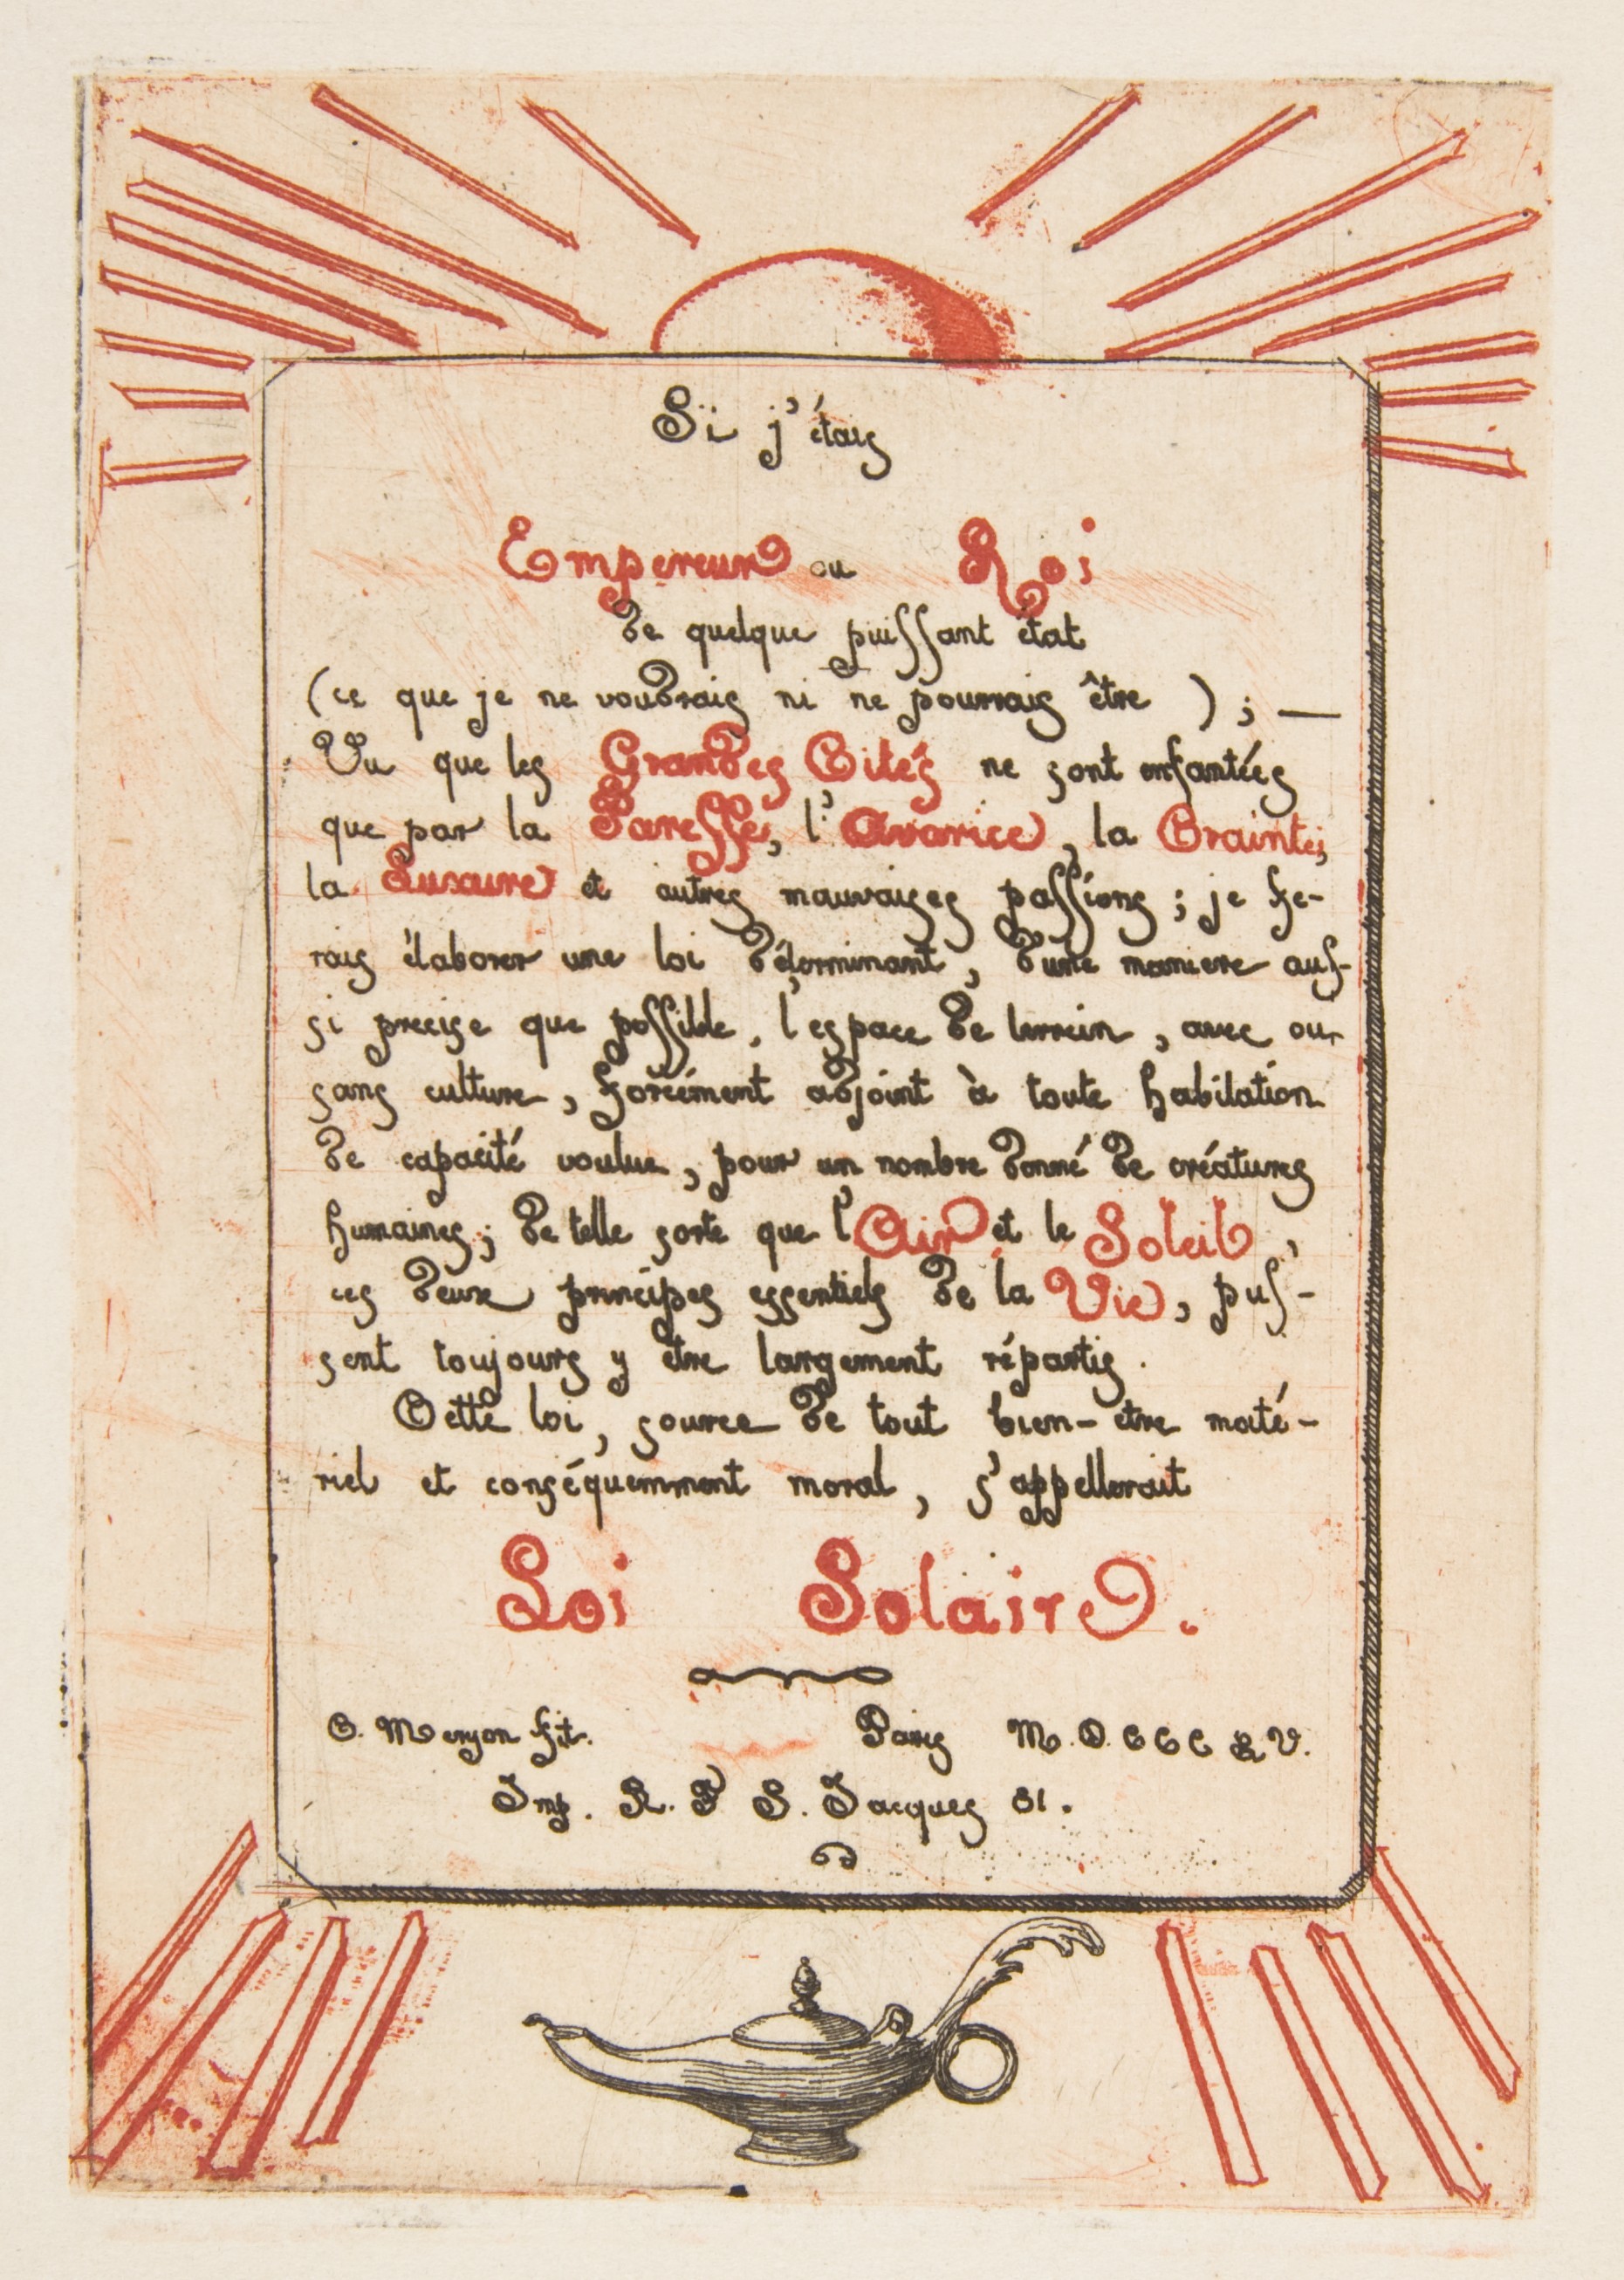 Si j'étais
Empereur ou Roi
de quelque puissant état
(ce que je ne voudrais ni ne pourrais être ) ; —
Vu que les Grandes Cités ne sont enfantées
que par la Paresse, l'Avarice, la Crainte,
la Luxure et autres mauvaises passions ; je fe-
rais élaborer une loi déterminant, d'une maniere aus-
si precise que possible, l'espace de terrein, avec ou
sans culture, forcément adjoint à toute habitation
de capacité voulue, pour un nombre donné de créatures
humaines; de telle sorte que l'Air et le Soleil,
ces deux principes essentiels de la Vie, pus-
sent toujours y être largement répartis.
Cette loi, source de tout bien-etre maté-
riel et conséquemment moral, s'appellerait
Loi Solaire.
C. Meryon fit. Paris M.D.CCC LV.
Imp. R. N. S. Jacques 81.